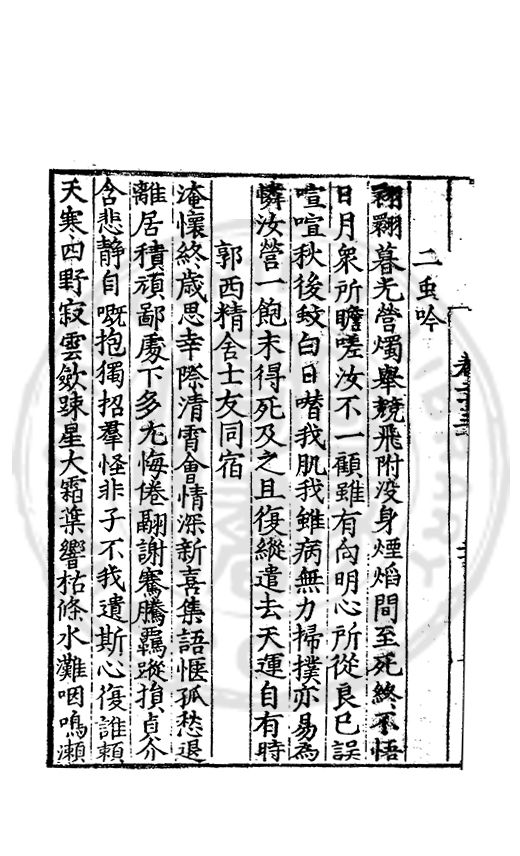 二虫吟
翾翾暮光營燭舉競飛附没身煙焰間至死終不悟
日月衆所瞻嗟汝不一顧雖有向明心所從良已誤
喧喧秋後蚊白日噆我肌我雖病無力掃撲亦易為
憐汝營一飽未得死及之且復縱遣去天運自有時
郭西精舍士友同宿
淹懷終歲思幸際清霄會情深新喜集語愜孤愁退
離居積頑鄙處下多尤悔倦翮謝騫騰羈蹤損貞介
含悲靜自嘅抱獨招羣怪非子不我遺斯心復誰賴
天寒四野寂雲斂踈星大霜葉響枯條水灘咽鳴瀨